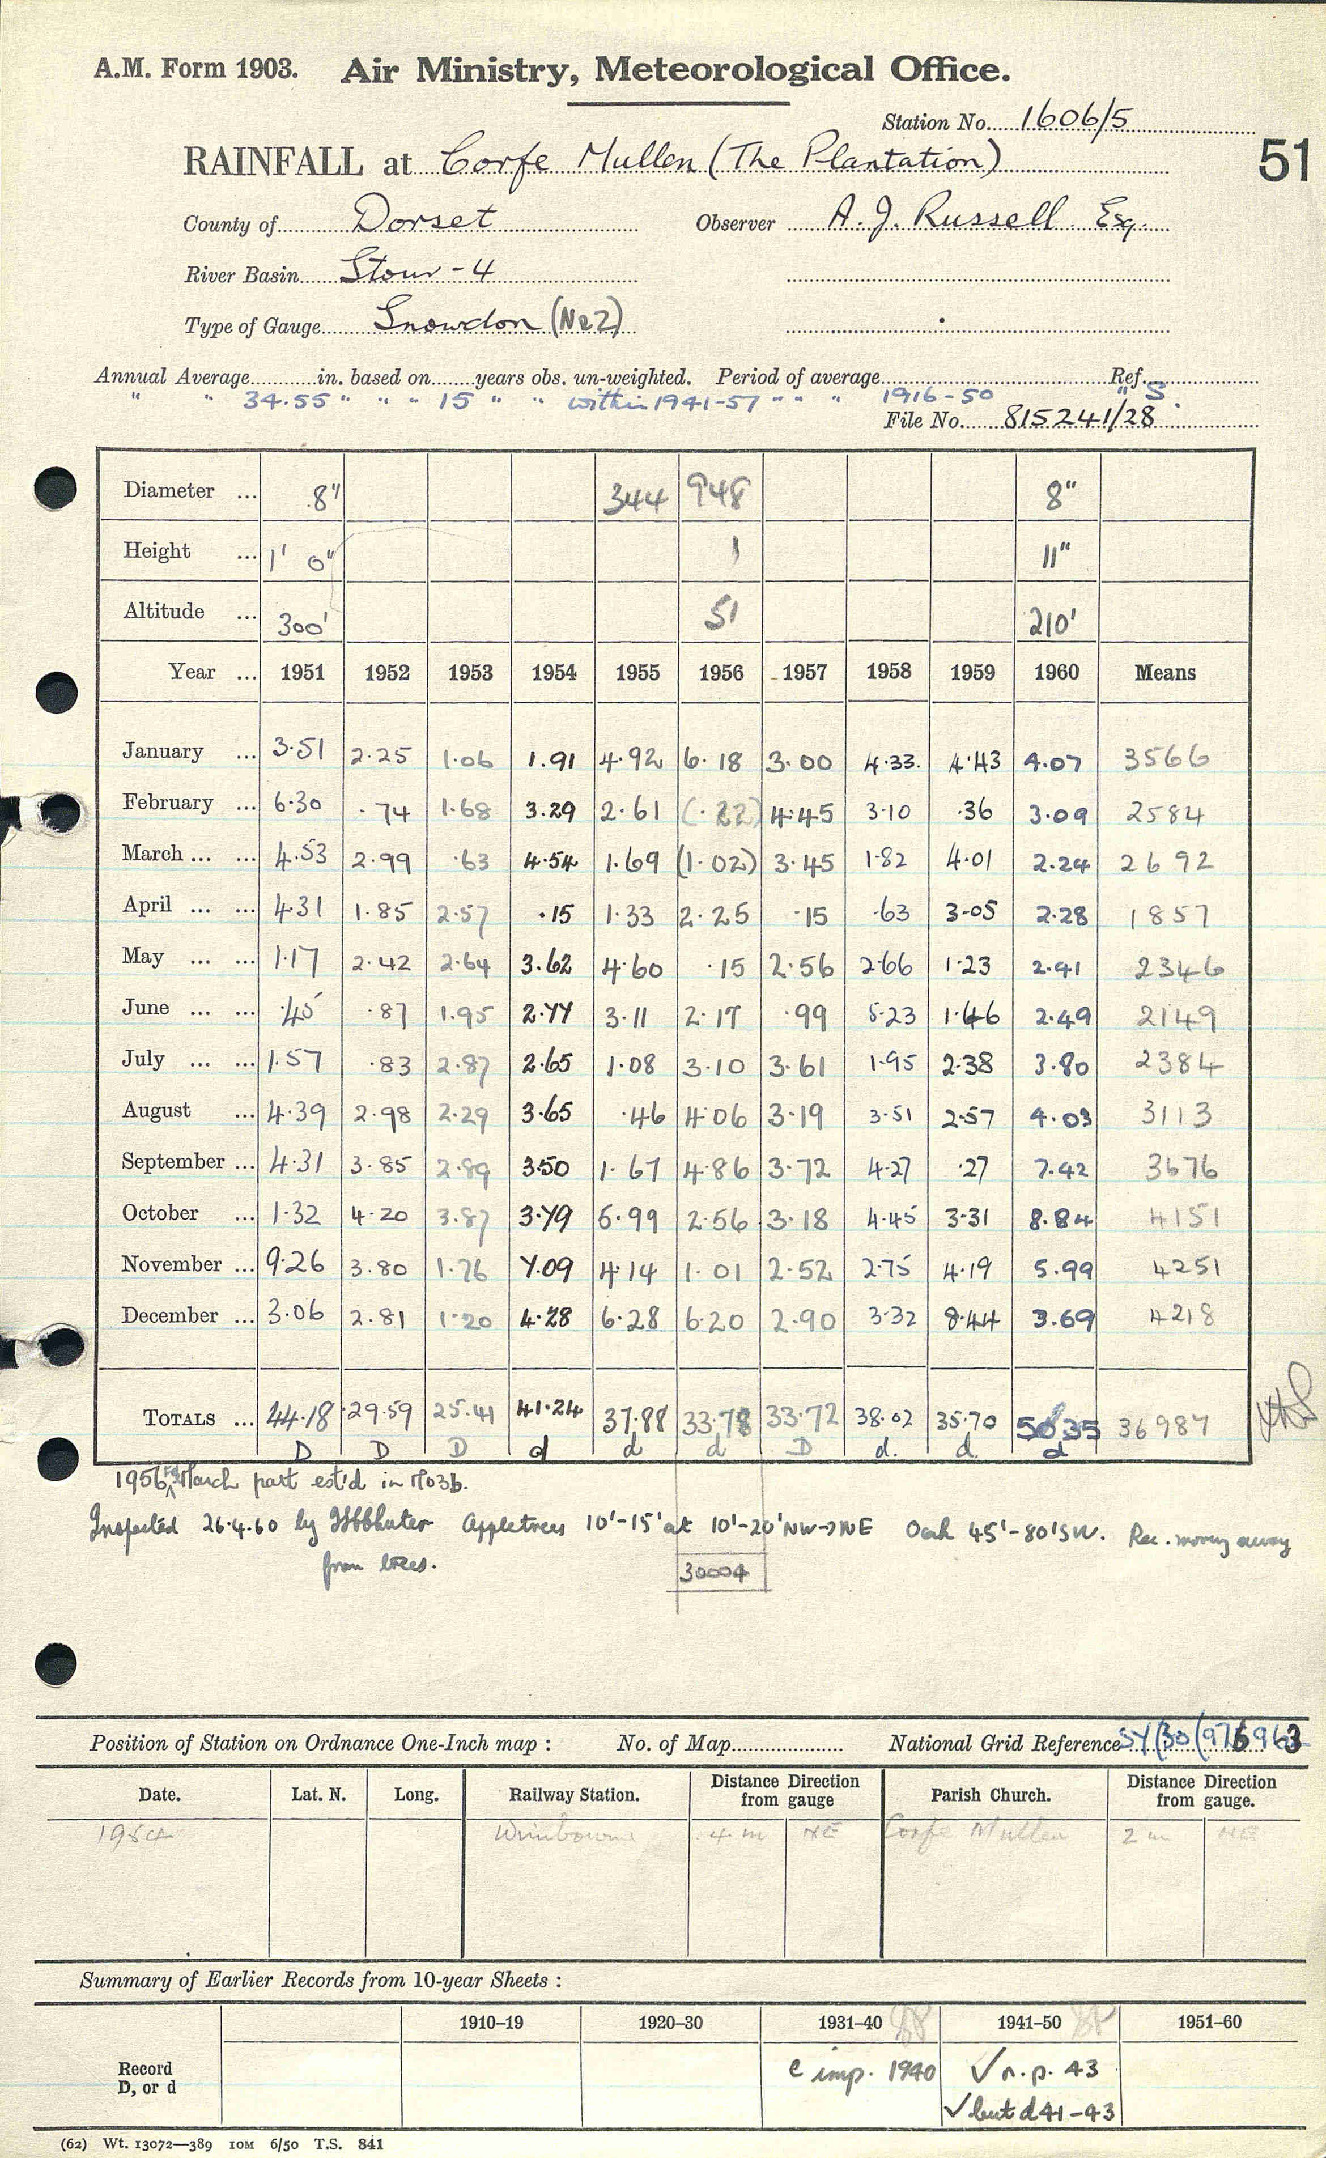 A.M. Form 1903. Air Ministry, Meteorological Office.
Station No. 1606/5
RAINFALL at Corfe Mullen (The Plantation)
51
County of Dorset Observer A. J. Russell Esq.
River Basin Stour - 4
Type of Gauge Snowdon (No 2)
Annual Average in. based on years obs. un-weighted. Period of average Ref.
" " 34.55 " " " 15 " " within 1941-57 " " " 1916-50 " S.
File No. 815241/28
Diameter ... 8" 344 948 8"
Height ... 1' 0" 1 11"
Altitude ... 300' 51 210'
Year ... 1951 1952 1953 1954 1955 1956 1957 1958 1959 1960 Means
January ... 3.51 2.25 1.06 1.91 4.92 6.18 3.00 4.33 4.43 4.07 3566
February ... 6.30 .74 1.68 3.29 2.61 (.22) 4.45 3.10 .36 3.09 2584
March ... ... 4.53 2.99 .63 4.54 1.69 (1.02) 3.45 1.82 4.01 2.24 2692
April ... ... 4.31 1.85 2.57 .15 1.33 2.25 .15 .63 3.05 2.28 1857
May ... ... 1.17 2.42 2.64 3.62 4.60 .15 2.56 2.66 1.23 2.41 2346
June ... ... .45 .87 1.95 2.77 3.11 2.17 .99 5.23 1.46 2.49 2149
July ... ... 1.57 .83 2.87 2.65 1.08 3.10 3.61 1.95 2.38 3.80 2384
August ... 4.39 2.98 2.29 3.65 .46 4.06 3.19 3.51 2.57 4.03 3113
September ... 4.31 3.85 2.89 3.50 1.67 4.86 3.72 4.27 .27 7.42 3676
October ... 1.32 4.20 3.87 3.79 5.99 2.56 3.18 4.45 3.31 8.84 4151
November ... 9.26 3.80 1.76 7.09 4.14 1.01 2.52 2.75 4.19 5.99 4251
December ... 3.06 2.81 1.20 4.28 6.28 6.20 2.90 3.32 8.44 3.69 4218
TOTALS ... 44.18 29.59 25.41 41.24 37.88 33.78 33.72 38.02 35.70 50.35 36987
D D D d d d D d. d d
1956 March part est'd in M03b.
Inspected 26.4.60 by Appletrees 10'-15' at 10'-20' NW→NE Oak 45'-80' SW. Rec. moving away
from trees.
30004
Position of Station on Ordnance One-Inch map : No. of Map National Grid Reference SY(30)
Date. Lat. N. Long. Railway Station. Distance from gauge Direction Parish Church. Distance from gauge. Direction
1954 Wimborne 4 m NE Corfe Mullen 2 m NE
Summary of Earlier Records from 10-year Sheets :
1910-19 1920-30 1931-40 1941-50 1951-60
Record D, or d e imp. 1940 ✓ n.p. 43
✓ but d 41-43
(62) Wt. 13072—389 10M 6/50 T.S. 841